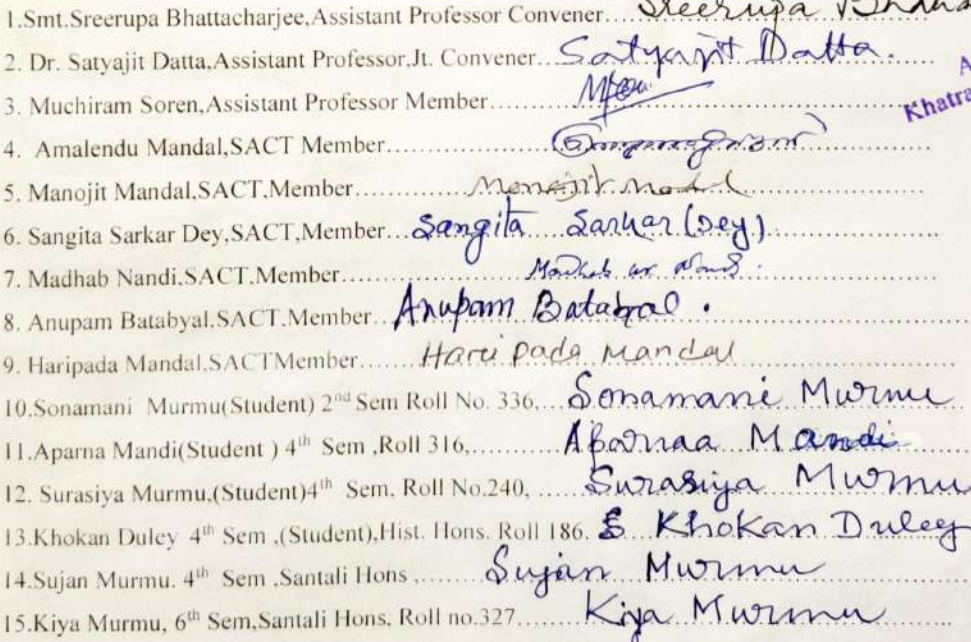 1.Smt.Sreerupa Bhattacharjee,Assistant Professor Convener.... Sreerupa
2. Dr. Satyajit Datta,Assistant Professor,Jt. Convener... Satyajit Datta.
3. Muchiram Soren,Assistant Professor Member....................
Khatra
4. Amalendu Mandal,SACT Member....................
5. Manojit Mandal,SACT.Member.................... Manojit Mandal
6. Sangita Sarkar Dey,SACT,Member... Sangita Sarkar (Dey)
7. Madhab Nandi,SACT.Member....................
8. Anupam Batabyal.SACT.Member... Anupam Batabyal.
9. Haripada Mandal.SACTMember......... Haripada Mandal
10.Sonamani Murmu(Student) 2nd Sem Roll No. 336,... Sonamani Murmu
11.Aparna Mandi(Student ) 4th Sem ,Roll 316,........... Aparnaa Mandi
12. Surasiya Murmu,(Student)4th Sem, Roll No.240, ..... Surasiya Murmu
13.Khokan Duley 4th Sem ,(Student),Hist. Hons. Roll 186. Khokan Duley
14.Sujan Murmu. 4th Sem ,Santali Hons ......... Sujan Murmu
15.Kiya Murmu, 6th Sem,Santali Hons. Roll no.327......... Kiya Murmu